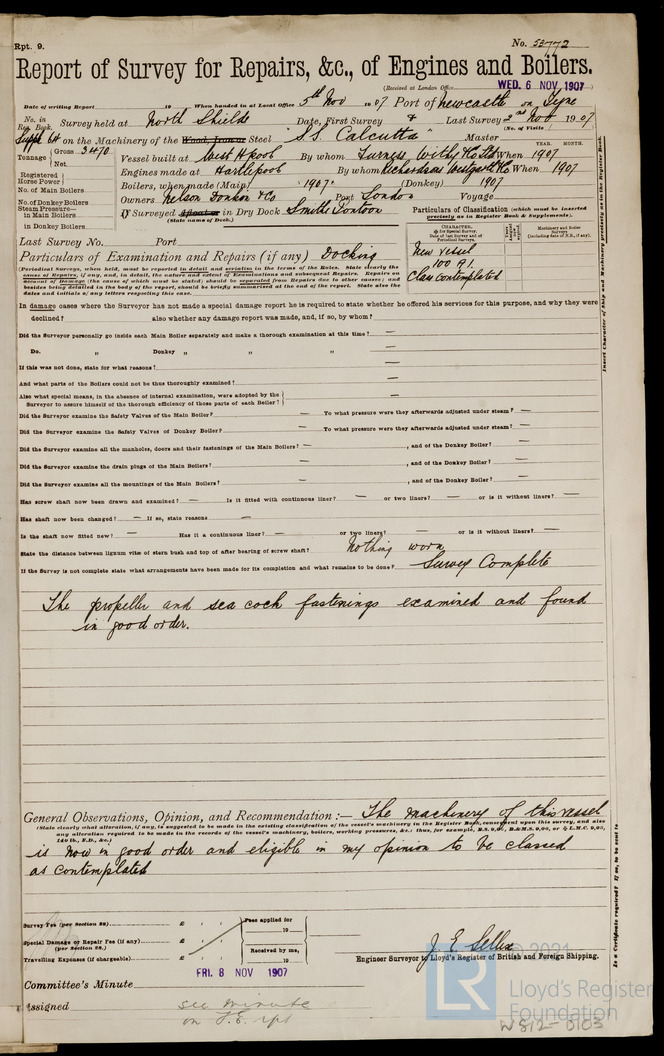 Rpt. 9.
No. 53772
Report of Survey for Repairs, &c., of Engines and Boilers.
(Received at London Office
WED. 6 NOV 1907
Date of writing Report 19 When handed in at Local Office 5th Nov 1907 Port of Newcastle on Tyne
No. in Reg. Book. Survey held at North Shields Date, First Survey & Last Survey 2nd Nov 1907
(No. of Visits )
Supp 64 on the Machinery of the Wood, Iron or Steel "S.S. Calcutta" Master
Tonnage Gross 3470 Net
YEAR. MONTH.
Vessel built at West Hpool By whom Furness Withy & Co Ltd When 1907
Registered Horse Power
Engines made at Hartlepool By whom Richardsons Westgarth & Co When 1907
No. of Main Boilers
Boilers, when made (Main) 1907 (Donkey) 1907
No. of Donkey Boilers
Owners Nelson Donkin & Co Port London Voyage
Steam Pressure— in Main Boilers
in Donkey Boilers
If Surveyed Afloat or in Dry Dock Smiths Pontoon
(State name of Dock.)
Particulars of Classification (which must be inserted precisely as in Register Book & Supplements).
CHARACTER.
Machinery and Boiler Surveys (including date of N.B., if any).
New vessel
100 A1.
Class contemplated
Last Survey No. Port
Particulars of Examination and Repairs (if any) Docking
(Periodical Surveys, when held, must be reported in detail and seriatim in the terms of the Rules. State clearly the
cause of Repairs, if any, and, in detail, the nature and extent of Examinations and subsequent Repairs. Repairs on
account of Damage (the cause of which must be stated) should be separated from Repairs due to other causes; and
besides being detailed in the body of the report, should be briefly summarised at the end of the report. State also the
dates and initials of any letters respecting this case.)
In damage cases where the Surveyor has not made a special damage report he is required to state whether he offered his services for this purpose, and why they were
declined? also whether any damage report was made, and, if so, by whom?
Did the Surveyor personally go inside each Main Boiler separately and make a thorough examination at this time? —
Do. " Donkey " " " —
If this was not done, state for what reasons? —
And what parts of the Boilers could not be thus thoroughly examined? —
Also what special means, in the absence of internal examination, were adopted by the
Surveyor to assure himself of the thorough efficiency of those parts of each Boiler? —
Did the Surveyor examine the Safety Valves of the Main Boiler? — To what pressure were they afterwards adjusted under steam? —
Did the Surveyor examine the Safety Valves of Donkey Boiler? — To what pressure were they afterwards adjusted under steam? —
Did the Surveyor examine all the manholes, doors and their fastenings of the Main Boilers? — , and of the Donkey Boiler? —
Did the Surveyor examine the drain plugs of the Main Boilers? — , and of the Donkey Boiler? —
Did the Surveyor examine all the mountings of the Main Boilers? — , and of the Donkey Boiler? —
Has screw shaft now been drawn and examined? — Is it fitted with continuous liner? — or two liners? — or is it without liners? —
Has shaft now been changed? — If so, state reasons —
Is the shaft now fitted new? — Has it a continuous liner? — or two liners? — or is it without liners? —
State the distance between lignum vitæ of stern bush and top of after bearing of screw shaft? Nothing worn
If the Survey is not complete state what arrangements have been made for its completion and what remains to be done? Survey Complete
The propeller and sea cock fastenings examined and found
in good order.
General Observations, Opinion, and Recommendation :— The machinery of this vessel
(State clearly what alteration, if any, is suggested to be made in the existing classification of the vessel's machinery in the Register Book, consequent upon this survey, and also
any alteration required to be made in the records of the vessel's machinery, boilers, working pressures, &c.;
is now in good order and eligible in my opinion to be classed
as contemplated
Survey Fee (per Section 28) £ : :
Fees applied for
19
Special Damage or Repair Fee (if any) £ : :
(per Section 28.)
Received by me,
Travelling Expenses (if chargeable) £ : :
19
J. E. Seller
Engineer Surveyor to Lloyd's Register of British and Foreign Shipping.
FRI. 8 NOV 1907
Committee's Minute
Assigned see minute
on F.E. rpt
Insert Character of Ship and Machinery precisely as in the Register Book.
© 2021
LR
Lloyd's Register
Foundation
W812-0103